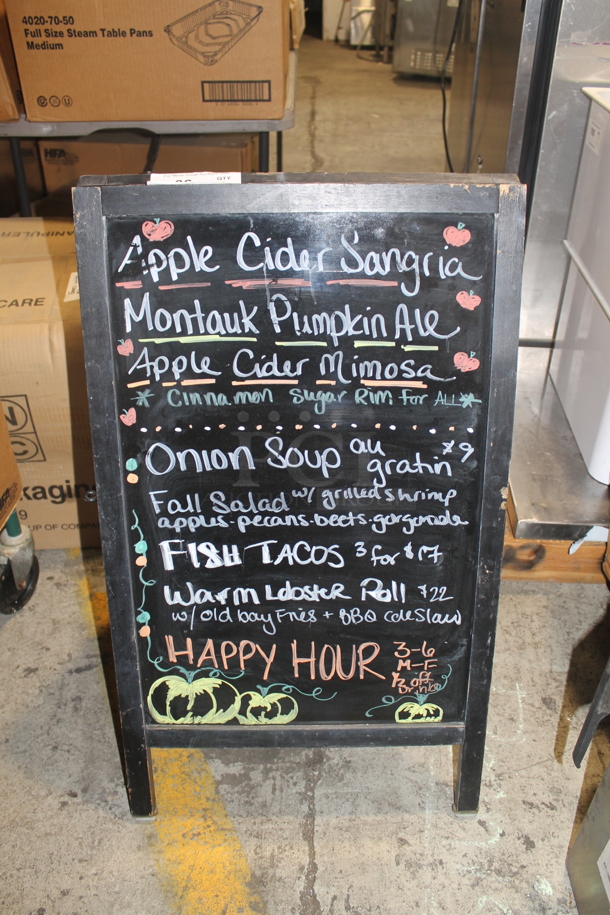 4020-70-50
Full Size Steam Table Pans
Medium
HFA
QTY
CARE
kaging
UP OF COMPA
Apple Cider Sangria
Montauk Pumpkin Ale
Apple Cider Mimosa
* Cinnamon Sugar Rim for ALL *
Onion Soup au gratin $9
Fall Salad w/ grilled shrimp
apples-pecans-beets-gorgonzola
FISH TACOS 3 for $17
Warm Lobster Roll $22
w/ old bay Fries + BBQ coleslaw
HAPPY HOUR 3-6
M-F
1/2 off
Drinks